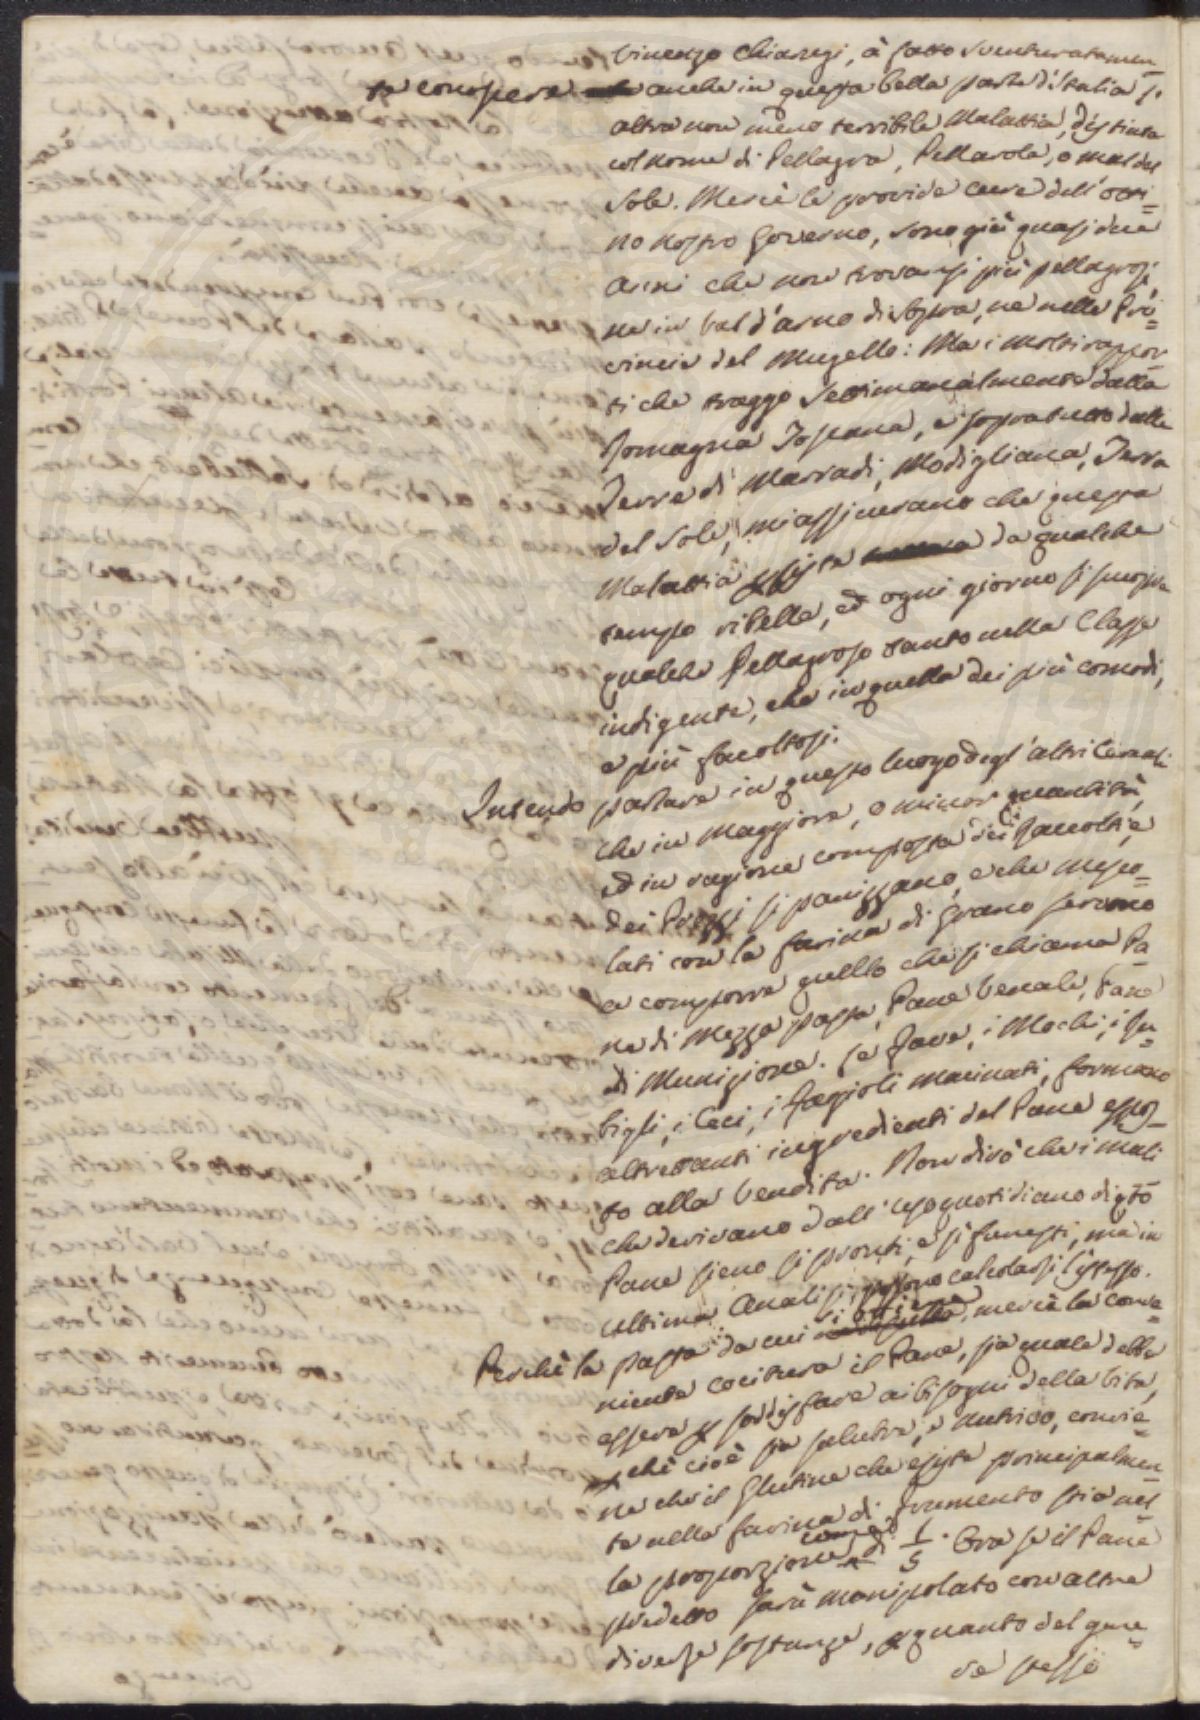 Vincenzo Chiarugi, à fatto sventuratamen=
te conoscere anche in questa bella parte d'Italia l'
altra non meno terribile Malattia, distinta
col nome di Pellagra, Pellarola, o mal del
Sole. Mercè le provide cure dell' otti=
mo nostro Governo, sono già quasi due
anni che non trovansi più pellagrosi,
nè in Val d'arno di sopra, nè nelle Pro=
vincie del Mugello: Ma i molti rappor=
ti che traggo Settimanalmente dalla
Romagna Toscana, e sopratutto dalle
Terre di Marradi, Modigliana, Terra
del Sole, mi assicurano che questa
Malattia esista da qualche
tempo ribelle, ed ogni giorno si scuopre
qualche Pellagroso tanto nella Classe
indigente, che in quella dei più comodi,
e più facoltosi.
Intendo parlare in questo luogo degl' altri Cereali
che in maggiore, o minor quantità,
ed in ragione composta dei Raccolti, e
dei Prezzi si panizzano, e che mesco=
lati con la farina di Grano servono
a comporre quello che si chiama Pa
ne di Mezza pasta, Pane Venale, Pane
di Munizione. Le Fave, i Mochi, i Ru=
bigli, i Ceci, i Fagioli macinati, formano
altrettanti ingredienti del Pane espos=
to alla Vendita. Non dirò che i mali
che derivano dall' uso quotidiano di qto
Pane sieno sì pronti, e sì funesti, ma in
ultima Analisi possono calcolarsi l'istesso.
Perchè la pasta da cui si ottiene, mercè la conve=
niente cocitura il Pane, sia quale debbe
essere p sodisfare ai bisogni della Vita,
chè cioè sia salubre, e nutrivo, convie=
ne che il Glutine che esiste principalmen=
te nella farina di frumento stia nel
la proporzione come di 1/5. Ora se il Pane
predetto sarà manipolato con altre
diverse sostanze, p quanto del gene=
re stesso